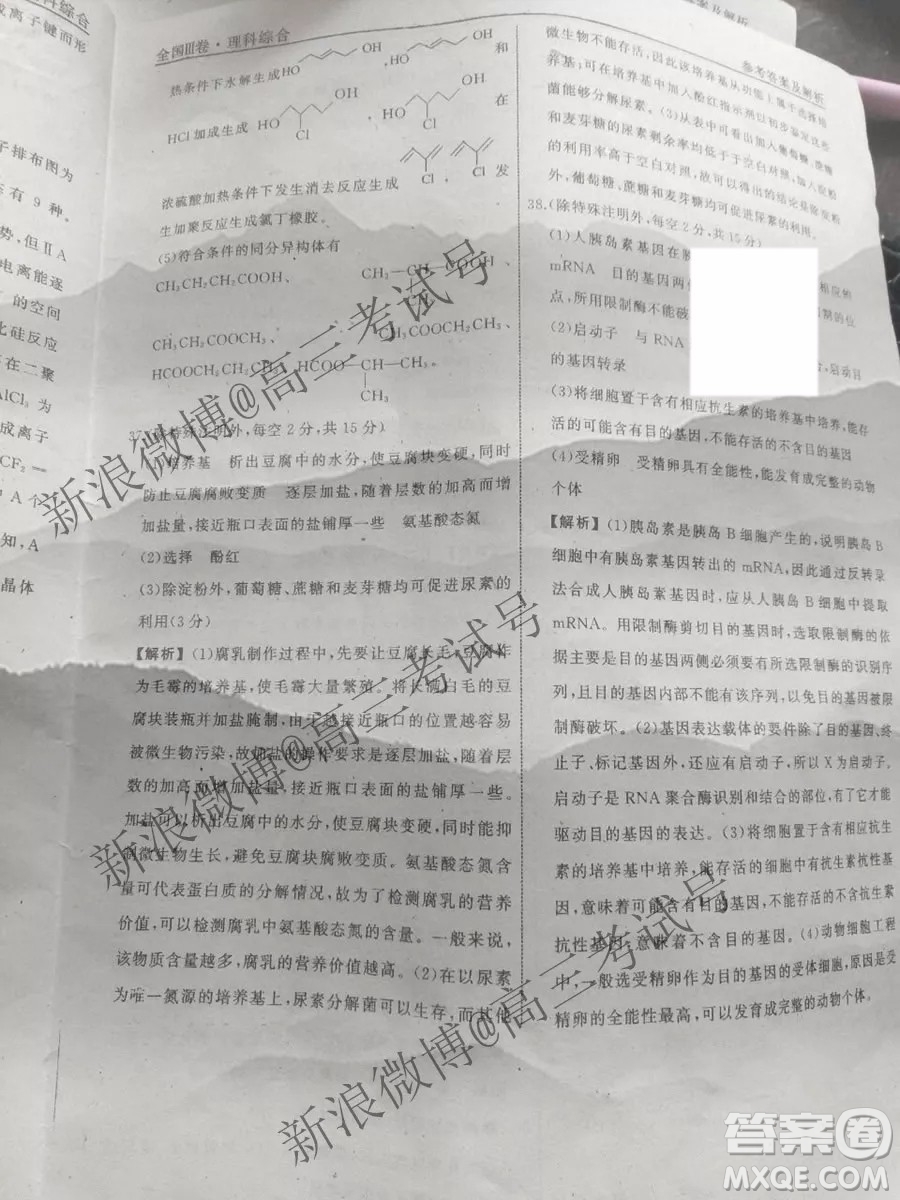 科综合
成离子键而形
子排布图为
共有 9 种。
势，但ⅡA
电离能逐
的空间
比硅反应
在二聚
AlCl₃ 为
成离子
CF₂ —
A 个
知，A
晶体
全国Ⅲ卷·理科综合
热条件下水解生成 HO OH、HO OH 和
HCl加成生成 HO OH Cl、HO OH Cl 在
浓硫酸加热条件下发生消去反应生成 Cl、Cl，发
生加聚反应生成氯丁橡胶。
(5)符合条件的同分异构体有
CH₃CH₂CH₂CH₂COOH、 CH₃—CH—CH₂COOH、
CH₃CH₂COOCH₃、 CH₃COOCH₂CH₃、
HCOOCH₂CH₂CH₃、HCOO—CH—CH₃。
CH₃
37.(除特殊注明外，每空2分，共15分)
(1)培养基 析出豆腐中的水分，使豆腐块变硬，同时
防止豆腐腐败变质 逐层加盐，随着层数的加高而增
加盐量，接近瓶口表面的盐铺厚一些 氨基酸态氮
(2)选择 酚红
(3)除淀粉外，葡萄糖、蔗糖和麦芽糖均可促进尿素的
利用(3分)
【解析】(1)腐乳制作过程中，先要让豆腐长毛，豆腐作
为毛霉的培养基，使毛霉大量繁殖。将长满白毛的豆
腐块装瓶并加盐腌制，由于越接近瓶口的位置越容易
被微生物污染，故加盐的操作要求是逐层加盐，随着层
数的加高而增加盐量，接近瓶口表面的盐铺厚一些。
加盐可以析出豆腐中的水分，使豆腐块变硬，同时能抑
制微生物生长，避免豆腐块腐败变质。氨基酸态氮含
量可代表蛋白质的分解情况，故为了检测腐乳的营养
价值，可以检测腐乳中氨基酸态氮的含量。一般来说，
该物质含量越高，腐乳的营养价值越高。(2)在以尿素
为唯一氮源的培养基上，尿素分解菌可以生存，而其他
参考答案及解析
微生物不能存活，因此该培养基从功能上属于选择培
养基；可在培养基中加入酚红指示剂以初步鉴定这些
菌能够分解尿素。(3)从表中可看出加入葡萄糖、蔗糖
和麦芽糖的尿素剩余率均低于空白对照，加入淀粉
的利用率高于空白对照，故可以得出的结论是除淀粉
外，葡萄糖、蔗糖和麦芽糖均可促进尿素的利用。
38.(除特殊注明外，每空2分，共15分)
(1)人胰岛素基因在胰 相应的
mRNA 目的基因两 的位
点，所用限制酶不能破
(2)启动子 与RNA 合，启动目
的基因转录
(3)将细胞置于含有相应抗生素的培养基中培养，能存
活的为可能含有目的基因，不能存活的不含目的基因
(4)受精卵 受精卵具有全能性，能发育成完整的动物
个体
【解析】(1)胰岛素是胰岛B细胞产生的，说明胰岛B
细胞中有胰岛素基因转出的mRNA，因此通过反转录
法合成人胰岛素基因时，应从人胰岛B细胞中提取
mRNA。用限制酶剪切目的基因时，选取限制酶的
依据主要是目的基因两侧必须要有所选限制酶的识别序
列，且目的基因内部不能有该序列，以免目的基因被限
制酶破坏。(2)基因表达载体的要件除了目的基因、终
止子、标记基因外，还应有启动子，所以X为启动子。
启动子是RNA聚合酶识别和结合的部位，有了它才能
驱动目的基因的表达。(3)将细胞置于含有相应抗生
素的培养基中培养，能存活的细胞中有抗生素抗性基
因，意味着可能含有目的基因，不能存活的不含抗生素
抗性基因，意味着不含目的基因。(4)动物细胞工程
中，一般选受精卵作为目的基因的受体细胞，原因是受
精卵的全能性最高，可以发育成完整的动物个体。
新浪微博@高三考试号
新浪微博@高三考试号
新浪微博@高三考试号
答案圈
MXQE.COM